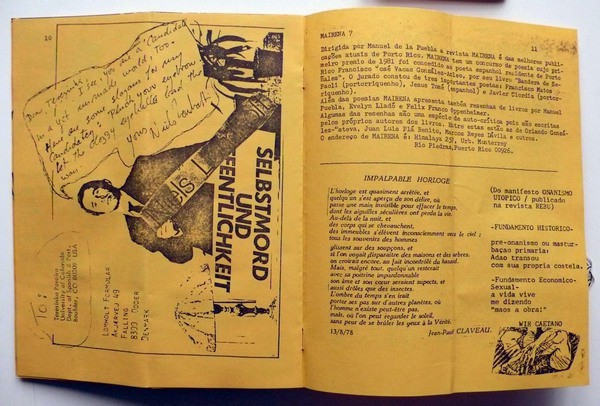 10
Dear Teresinha
I see you are a "Candidate
in a wit nurmate world, too.
Here are some slogans for very
Candidates. Pluck your eyebrow
let the doggy eyeballs chase the
Your Niels Lomholt
SELBSTMORD
UND
ÖFFENTLICHKEIT
To:
Teresinka Pereira
University of Colorado
Dept. of Spanish & Port.
Boulder, CO 80309 USA
LOMHOLT FORMULAR
FALLING
8300 ODDER
DENMARK
MAIRENA 7
11
Dirigida por Manuel de la Puebla a revista MAIRENA é das melhores publi-
cações atuais de Porto Rico. MAIRENA tem um concurso de poesia cujo pri-
meiro premio de 1981 foi concedido ao poeta espanhol residente de Porto
Rico Francisco "osé Vacas González-Adleo, por seu livro "Bandera de Se-
ñales". O jurado constou de três importantes poetas: Francisco Matos
Paoli (portorriquenho), Jesus Tomé (espanhol) e Javier Ciordia (porto-
rriquenho).
Além das poesias MAIRENA apresenta também resenhas de livros por Manuel
Puebla, Evelyn Uladé e Felix Franco Oppenheimer.
Algumas das resenhas são uma espécie de auto-crítica pois são escritas
pelos próprios autores dos livros. Entre estas estão as de Orlando Gonzá-
lez-"steva, Juan Luis Plá Benito, Marcos Reyes Dávila e outros.
O endereço de MAIRENA é: Himalaya 257, Urb. Monterrey
Río Piedras, Puerto Rico 00926.
IMPALPABLE HORLOGE
L'horloge est quasiment arrêtée, et
quelqu'un s'est aperçu de son délire, où
passe une main invisible pour effacer le temps,
dont les aiguilles séculières ont perdu la vie.
Au-delà de la nuit, et
des corps qui se chevauchent,
des immeubles s'élèvent inconsciemment vers le ciel;
tous les souvenirs des hommes
glissent sur des soupçons, et
si l'on voyait disparaître des maisons et des arbres,
on croirait encore, au fait incontrôlé du hasard.
Mais, malgré tout, quelqu'un resterait
avec sa poitrine impardonnable
son âme et son cœur seraient suspects, et
aussi drôles que des insectes.
L'ombre du temps s'en irait
porter ses pas sur d'autres planètes, où
l'homme n'existe peut-être pas,
mais, où l'on peut regarder le soleil,
sans peur de se brûler les yeux à la Vérité.
13/8/78 Jean-Paul CLAVEAU.
(Do manifesto ONANISMO
UTOPICO / publicado
na revista REBU)
-FUNDAMENTO HISTORICO-
pre-onanismo ou mastur-
baçao primaria:
Adao transou
com sua propria costela.
-Fundamento Economico-
Sexual-
a vida vive
me dizendo
"maos a obra!"
WIR CAETANO